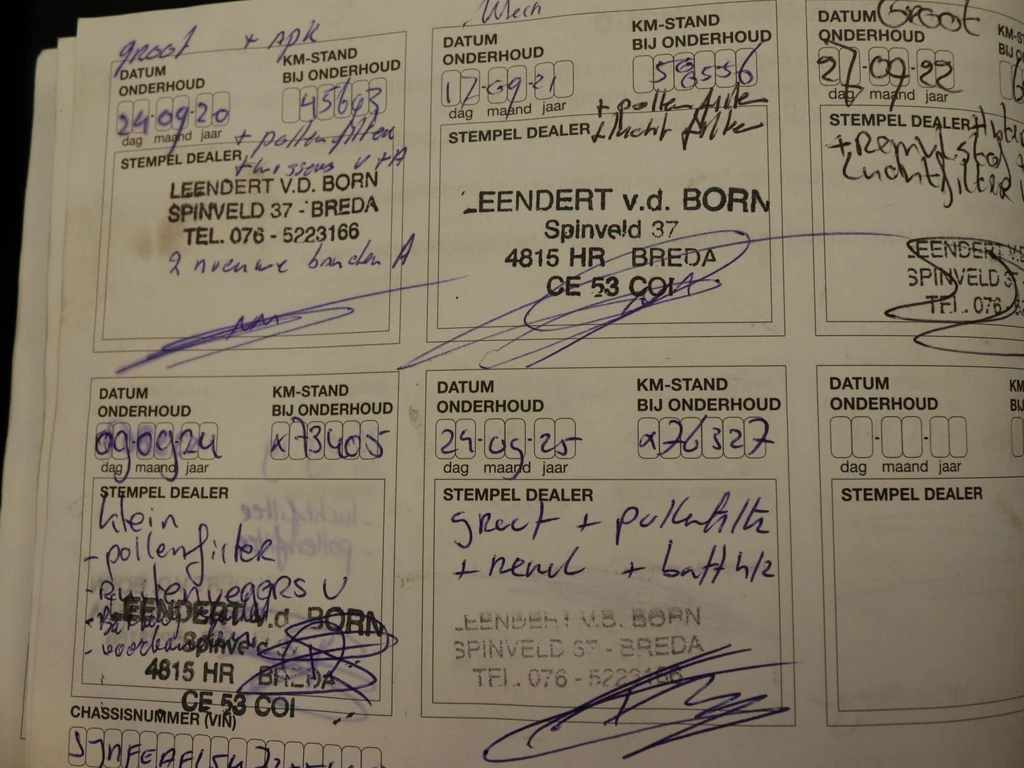 groot + APK
DATUM
ONDERHOUD
KM-STAND
BIJ ONDERHOUD
24-09-20
45643
dag maand jaar
+ pollenfilter
STEMPEL DEALER
+ wissers V+A
LEENDERT V.D. BORN
SPINVELD 37 - BREDA
TEL. 076 - 5223166
2 nieuwe banden A
DATUM
ONDERHOUD
KM-STAND
BIJ ONDERHOUD
17-09-21
58556
dag maand jaar
+ pollenfilter
STEMPEL DEALER
+ lucht filter
LEENDERT v.d. BORN
Spinveld 37
4815 HR BREDA
CE 53 COI
Groot
DATUM
ONDERHOUD
27-09-22
dag maand jaar
STEMPEL DEALER
+ Remvlstof
Luchtfilter
LEENDERT V.
SPINVELD 3
TEL. 076
DATUM
ONDERHOUD
KM-STAND
BIJ ONDERHOUD
09-09-24
x73405
dag maand jaar
STEMPEL DEALER
klein
- pollenfilter
- Ruitenwegers V
LEENDERT v.d. BORN
Spinveld
4815 HR BREDA
CE 53 COI
DATUM
ONDERHOUD
KM-STAND
BIJ ONDERHOUD
24-09-25
x76327
dag maand jaar
STEMPEL DEALER
groot + pollenfilte
+ remvl + batt
LEENDERT V.D. BORN
SPINVELD 37 - BREDA
TEL. 076 - 5223166
DATUM
ONDERHOUD
dag maand jaar
STEMPEL DEALER
CHASSISNUMMER (VIN)